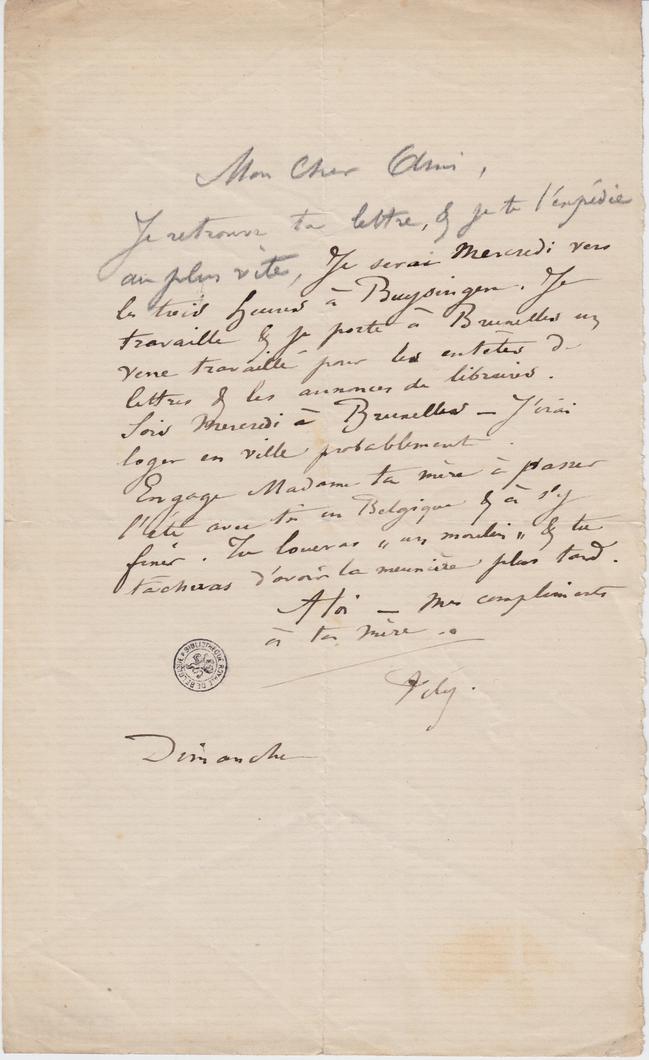 Mon Cher Ami,
Je retrouve ta lettre, & je te l'expédie
au plus vite, Je serai Mercredi vers
les trois heures à Buysingen. Je
travaille & je porte à Bruxelles un
verre travaillé pour les entêtes de
lettres & les annonces de libraires.
Sois Mercredi à Bruxelles – J'irai
loger en ville probablement.
Engage Madame ta mère à passer
l'été avec toi en Belgique & à s'y
finer. Tu loueras „un moulin" & tu
tâcheras d'avoir la meunière plus tard.
A toi – Mes compliments
à ta mère.
Dimanche
BIBLIOTHÈQUE ROYALE DE BELGIQUE